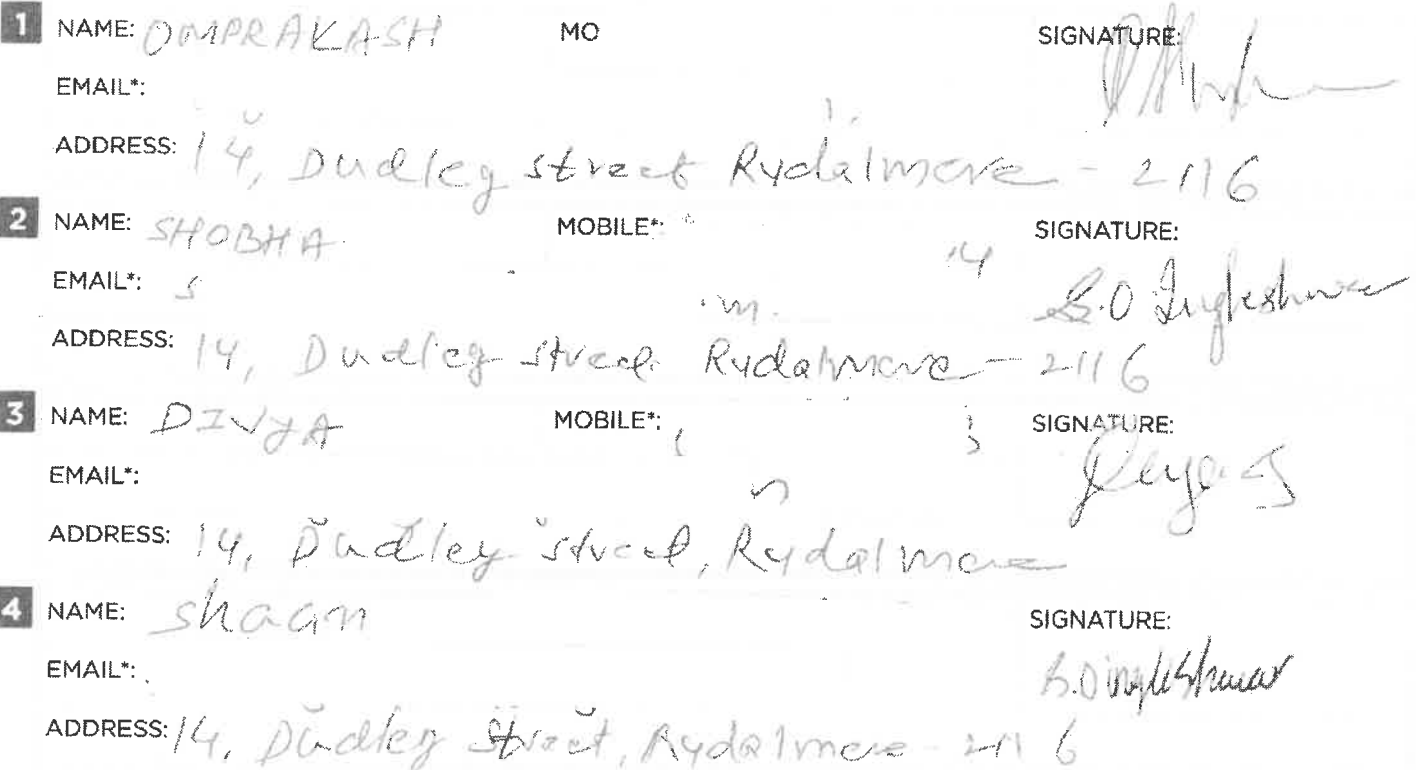 1 NAME: OMPRAKASH MO SIGNATURE:
EMAIL*:
ADDRESS: 14, Dudley street Rydalmere - 2116
2 NAME: SHOBHA MOBILE*: SIGNATURE:
EMAIL*: S
S.O Ingleshwar
ADDRESS: 14, Dudley street Rydalmere - 2116
3 NAME: DIVYA MOBILE*: SIGNATURE:
EMAIL*:
ADDRESS: 14, Dudley street, Rydalmere
4 NAME: shaan SIGNATURE:
EMAIL*:
S.O ingleshwar
ADDRESS: 14, Dudley street, Rydalmere - 2116